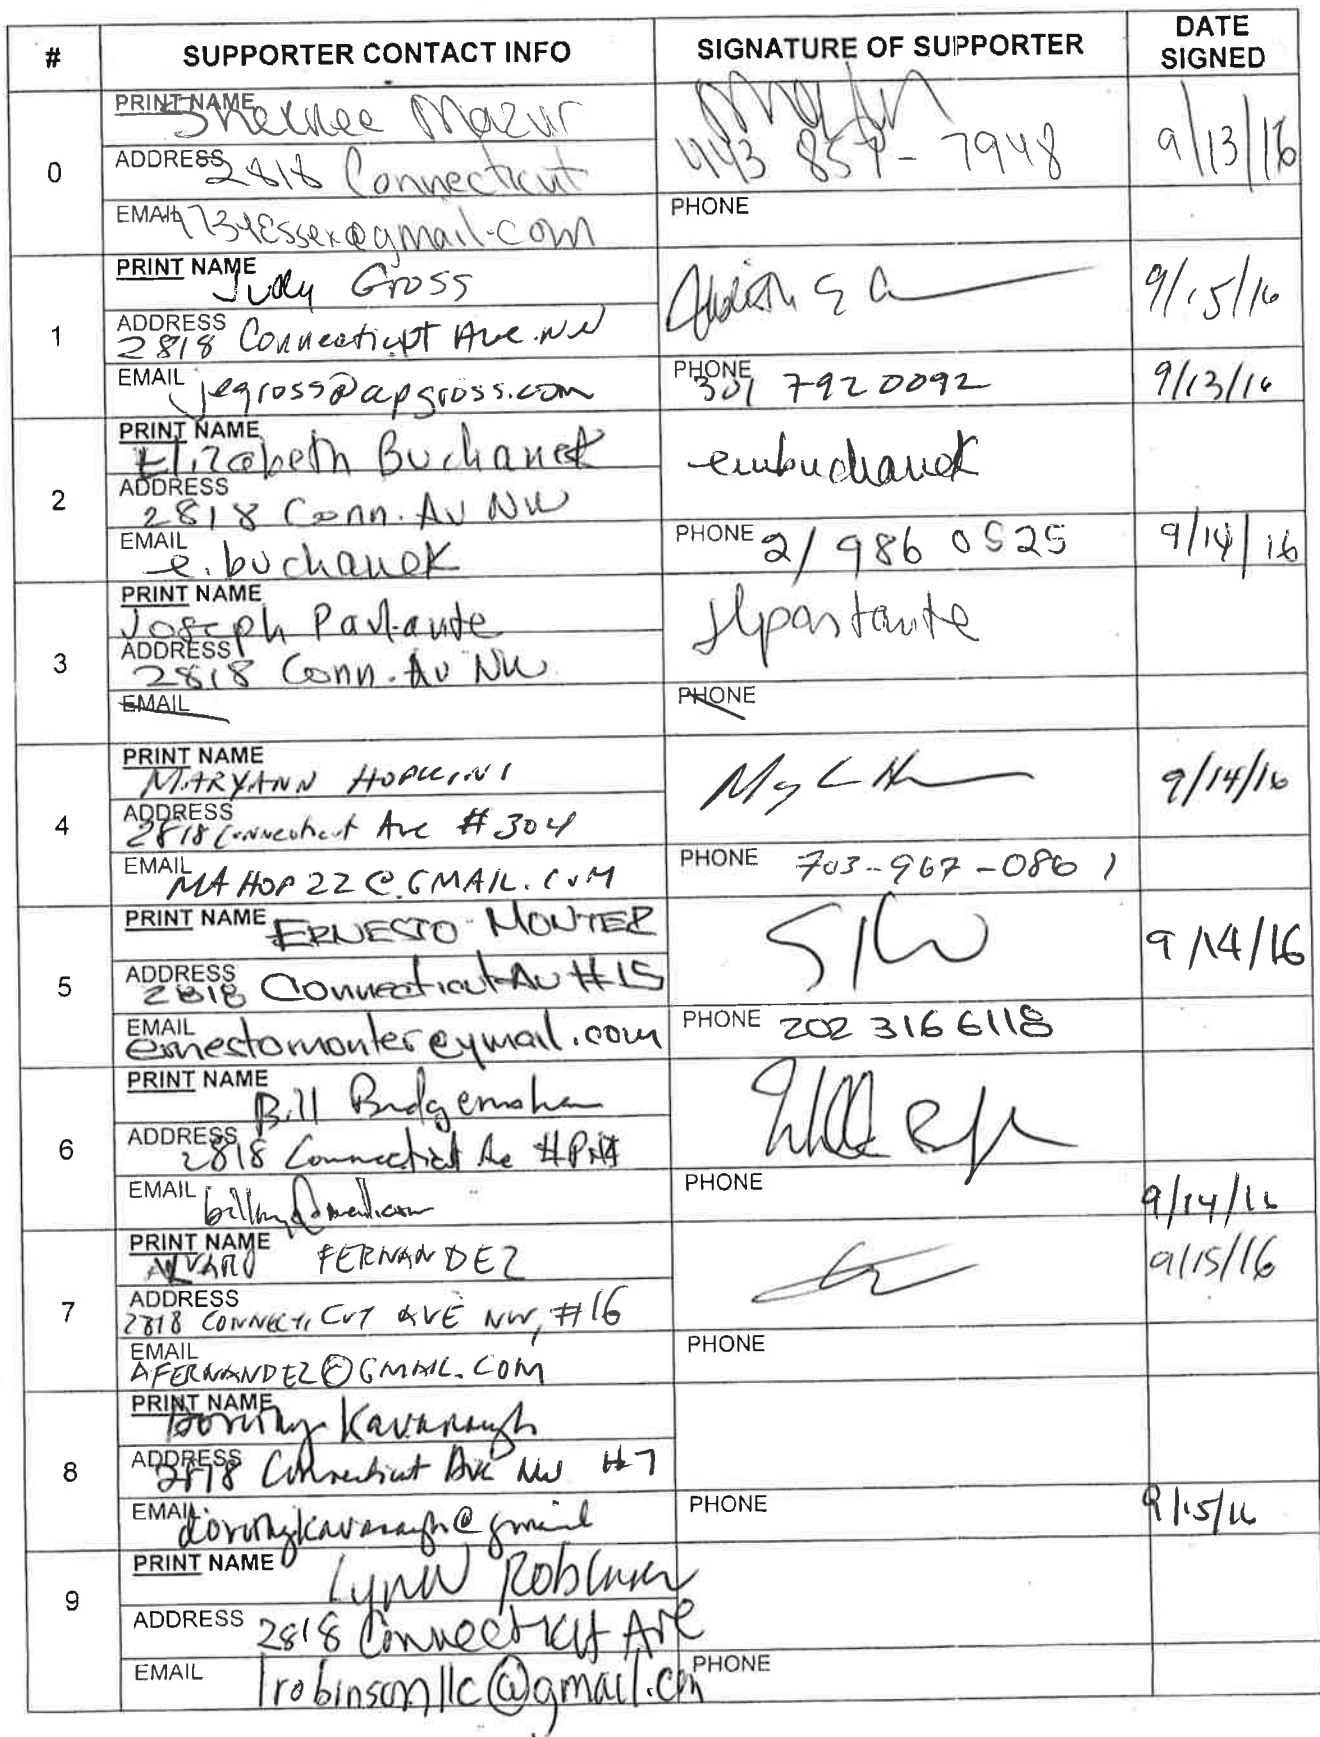 # SUPPORTER CONTACT INFO SIGNATURE OF SUPPORTER DATE SIGNED
0
PRINT NAME Mazur
ADDRESS 2818 Connecticut
443 857-7948
9/13/16
EMAIL 1734Essex@gmail.com
PHONE
1
PRINT NAME Judy Gross
9/15/16
ADDRESS 2818 Connecticut Ave. NW
EMAIL jegross@apgross.com
PHONE 301 792 0092
9/13/16
2
PRINT NAME Elizabeth Buchanek
embuchanek
ADDRESS 2818 Conn. Av NW
EMAIL e.buchanek
PHONE 2/ 986 0525
9/14/16
3
PRINT NAME Joseph
ADDRESS 2818 Conn. Av NW
EMAIL
PHONE
4
PRINT NAME MARYANN HOPKINS
9/14/16
ADDRESS 2818 Connecticut Ave #304
EMAIL MAHOP22@GMAIL.COM
PHONE 703-967-0861
5
PRINT NAME ERNESTO MONTER
9/14/16
ADDRESS 2818 Connecticut Av #15
EMAIL ernestomonter@ymail.com
PHONE 202 316 6118
6
PRINT NAME Bill
ADDRESS 2818 Connecticut Ave
EMAIL
PHONE
9/14/16
7
PRINT NAME ALVARO FERNANDEZ
9/15/16
ADDRESS 2818 CONNECTICUT AVE NW, #16
EMAIL AFERNANDEZ@GMAIL.COM
PHONE
8
PRINT NAME Dorothy Kavanaugh
ADDRESS 2818 Connecticut Ave NW #7
EMAIL dorothykavanaugh@gmail
PHONE
9/15/16
9
PRINT NAME Lynn Robinson
ADDRESS 2818 Connecticut Ave
EMAIL lrobinsonllc@gmail.com
PHONE